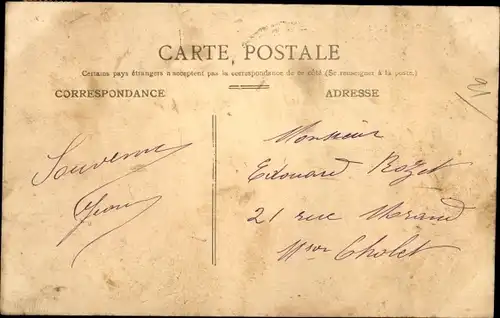 CARTE POSTALE
Certains pays étrangers n'acceptent pas la correspondance de ce côté (Se renseigner à la poste.)
CORRESPONDANCE
ADRESSE
Souvenir
Monsieur
Edouard Rozet
21 rue Morand
Cholet